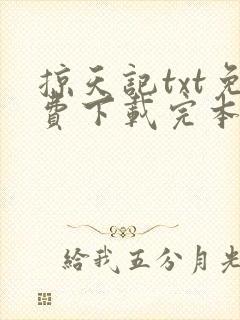 掠天記txt免
費下載完本
給我五分月光